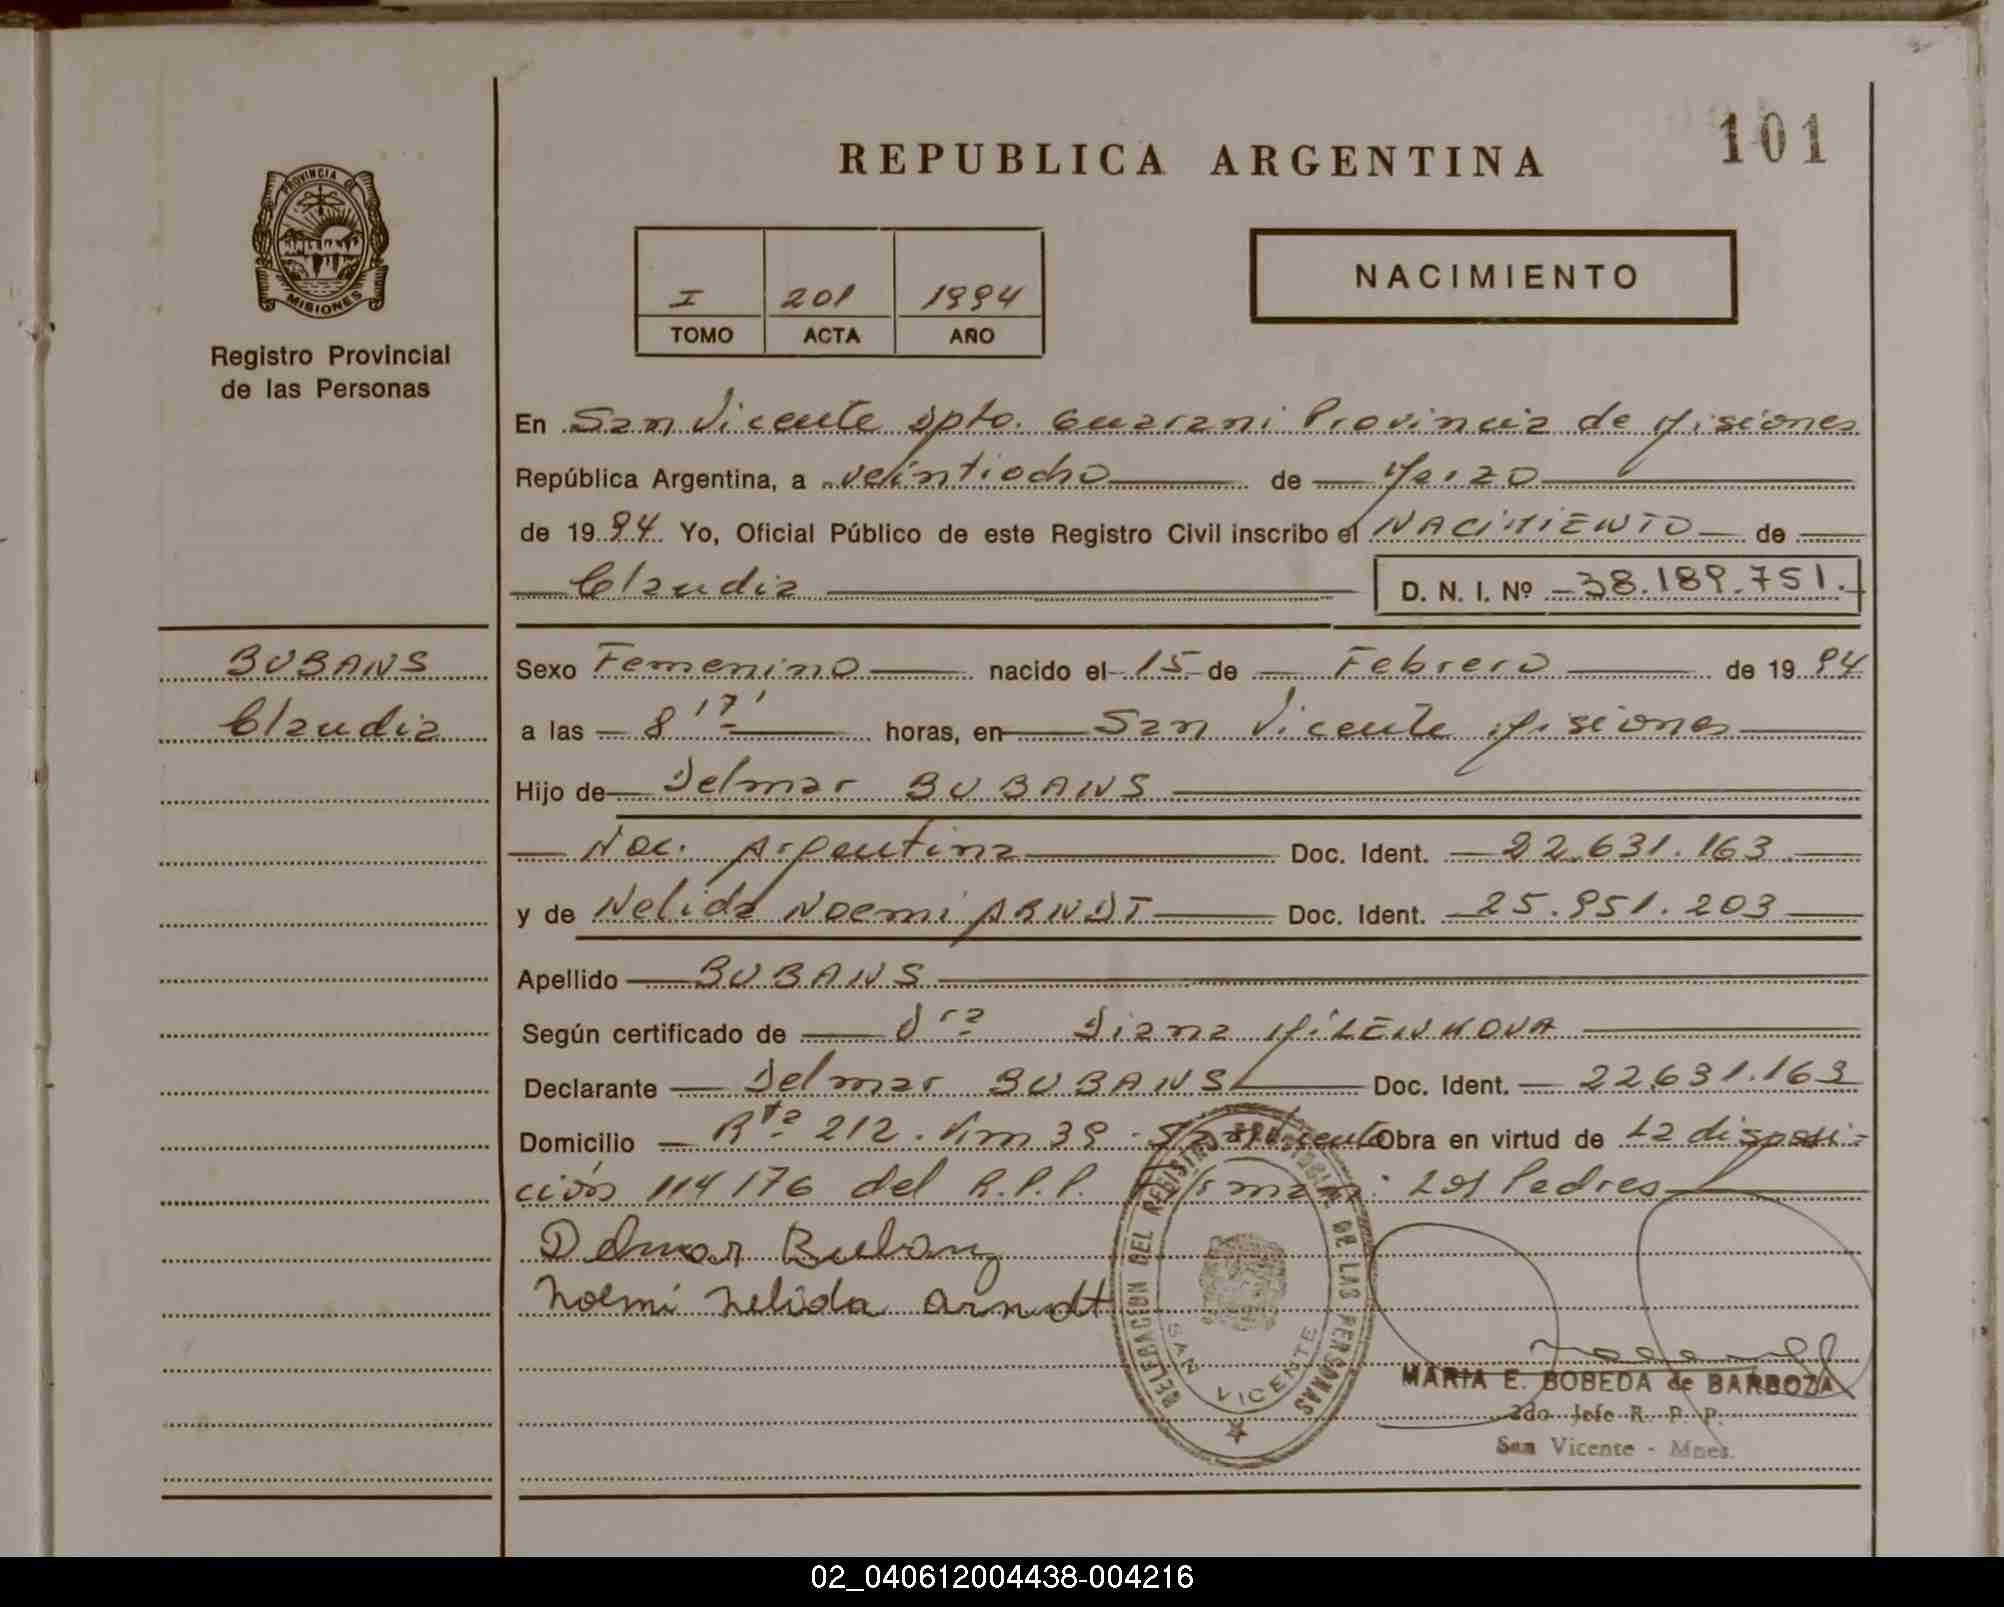 101
REPUBLICA ARGENTINA
PROVINCIA DE
MISIONES
Registro Provincial
de las Personas
I 201 1994
TOMO ACTA AÑO
NACIMIENTO
En San Vicente Dpto. Guarani Provincia de Misiones
República Argentina, a veintiocho de Marzo
de 1994 Yo, Oficial Público de este Registro Civil inscribo el NACIMIENTO de
Claudia D. N. I. Nº 38.189.751.
BUBANS
Claudia
Sexo Femenino nacido el 15 de Febrero de 1994
a las 8 17' horas, en San Vicente Misiones
Hijo de Delmar BUBANS
Nac. Argentina Doc. Ident. 22.631.163
y de Nelida Noemi ARNDT Doc. Ident. 25.951.203
Apellido BUBANS
Según certificado de Dra Diana MILENKOVA
Declarante Delmar BUBANS Doc. Ident. 22631.163
Domicilio Rta 212. Km 39 - San Vicente Obra en virtud de La disposi-
ción 114/76 del R.P.P. Firman: Los Padres
Delmar Bubanz
Noemi Nelida Arndt
DELEGACION DEL REGISTRO PROVINCIAL DE LAS PERSONAS
SAN VICENTE
MARIA E. BOBEDA de BARBOZA
2do Jefe R. P. P.
San Vicente - Mnes.
02_040612004438-004216